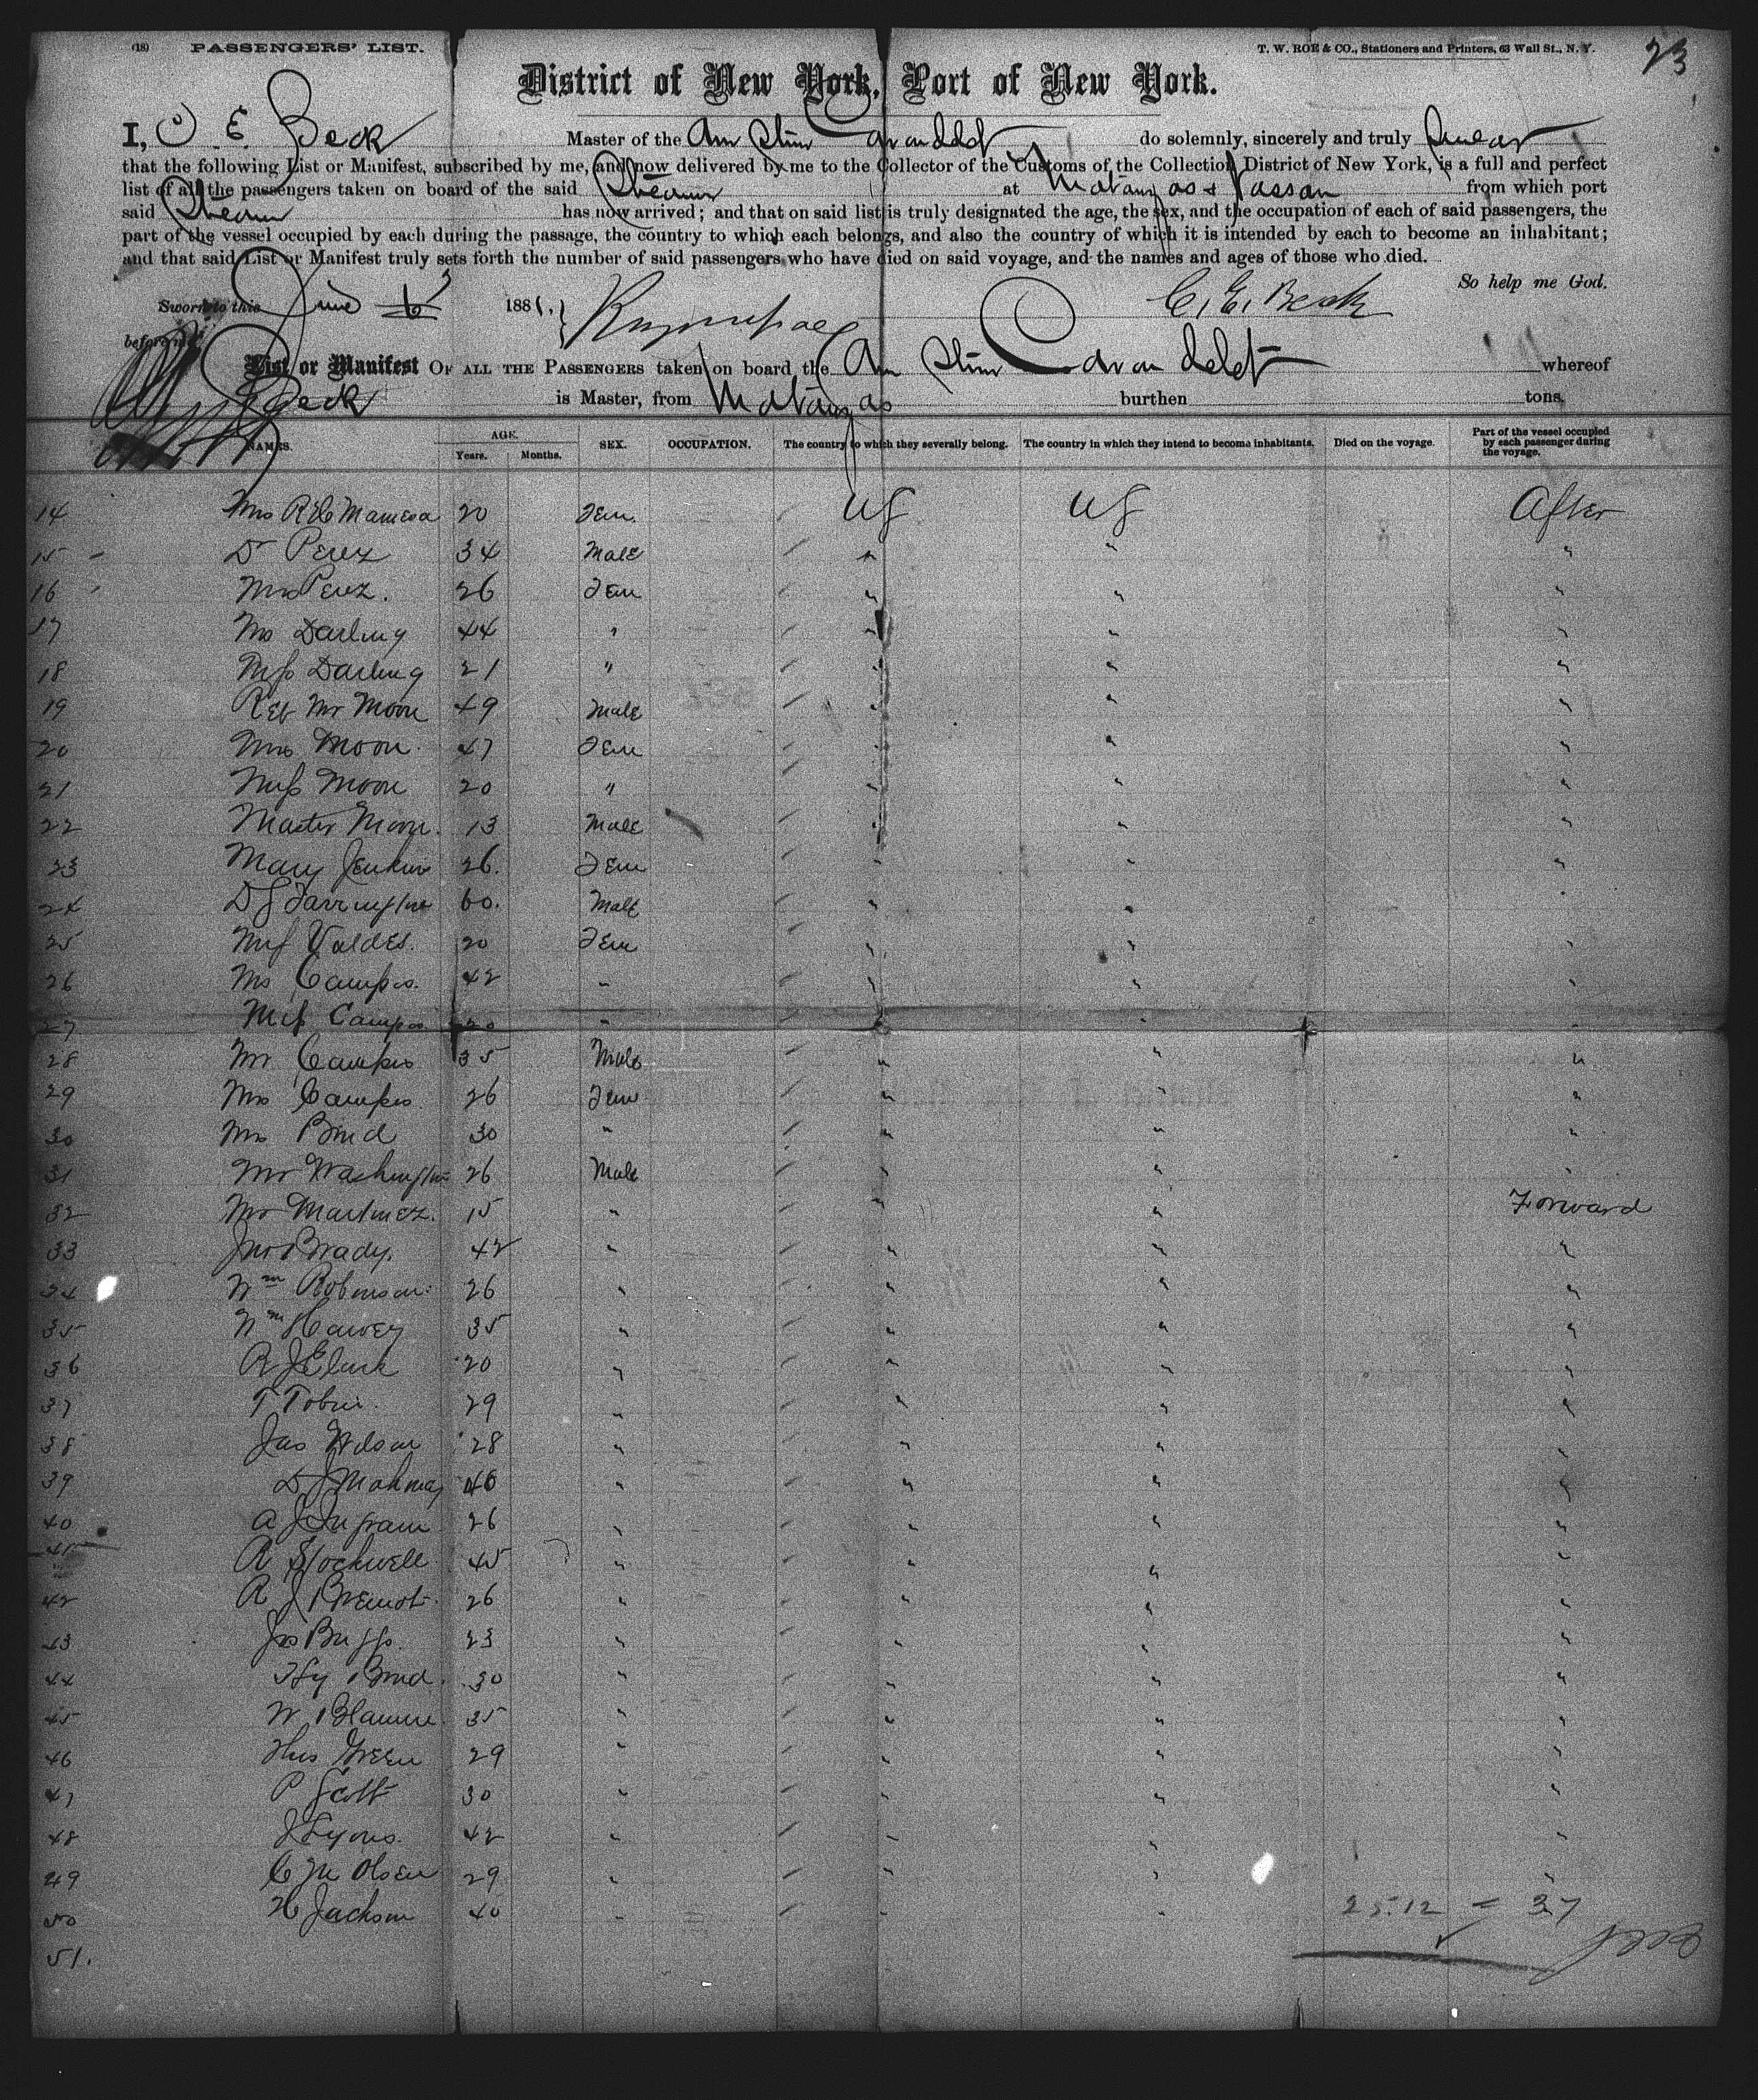 (18) PASSENGERS' LIST. T. W. ROE & CO., Stationers and Printers, 63 Wall St., N. Y. 23
District of New York, Port of New York.
I, C. E. Beck Master of the Am Stmr do solemnly, sincerely and truly Swear
that the following List or Manifest, subscribed by me, and now delivered by me to the Collector of the Customs of the Collection District of New York, is a full and perfect
list of all the passengers taken on board of the said Steamer at Matanzas & Nassau from which port
said Steamer has now arrived; and that on said list is truly designated the age, the sex, and the occupation of each of said passengers, the
part of the vessel occupied by each during the passage, the country to which each belongs, and also the country of which it is intended by each to become an inhabitant;
and that said List or Manifest truly sets forth the number of said passengers who have died on said voyage, and the names and ages of those who died.
So help me God.
Sworn to this June 6 1881. C. E. Beck
before me
List or Manifest OF ALL THE PASSENGERS taken on board the Am Stmr whereof
Beck is Master, from Matanzas burthen tons.
NAMES. AGE. Years. Months. SEX. OCCUPATION. The country to which they severally belong. The country in which they intend to become inhabitants. Died on the voyage. Part of the vessel occupied by each passenger during the voyage.
14 Mrs 20 Fem. US US After
15 Dr Perez 34 Male " " "
16 Mrs Perez. 26 Fem " " "
17 Mrs Darling 44 " " " "
18 Miss Darling 21 " " " "
19 Rev Mr Moon 49 Male " " "
20 Mrs Moon. 47 Fem " " "
21 Miss Moon 20 " " " "
22 Master Moon. 13 Male " " "
23 Mary Jenkins 26. Fem " " "
24 D S Farrington 60. Male " " "
25 Miss Valdes. 20 Fem " " "
26 Mrs Campos. 42 " " " "
27 Miss Campos 20 " " "
28 Mr Campos 35 Male " " "
29 Mrs Campos. 26 Fem " " "
30 Mrs 30 " " " "
31 Mr Washington 26 Male " " "
32 Mr Martinez. 15 " " " Forward
33 Jno Brady. 42 " " " "
34 Wm Robinson. 26 " " " "
35 Wm Harvey 35 " " " "
36 R J Clark 20 " " " "
37 T Tobin. 29 " " " "
38 Jas Wilson 28 " " " "
39 D J 40 " " " "
40 A J Ingram 26 " " " "
41 R Stockwell 45 " " " "
42 R J 26 " " " "
43 Jas Briggs. 23 " " " "
44 Hy 30 " " " "
45 W 35 " " " "
46 Thos Green 29 " " " "
47 P Scott 30 " " " "
48 J Lyons. 42 " " " "
49 C M Olsen 29 " " " "
50 H Jackson 40 " " " 25.12 = 37
51.